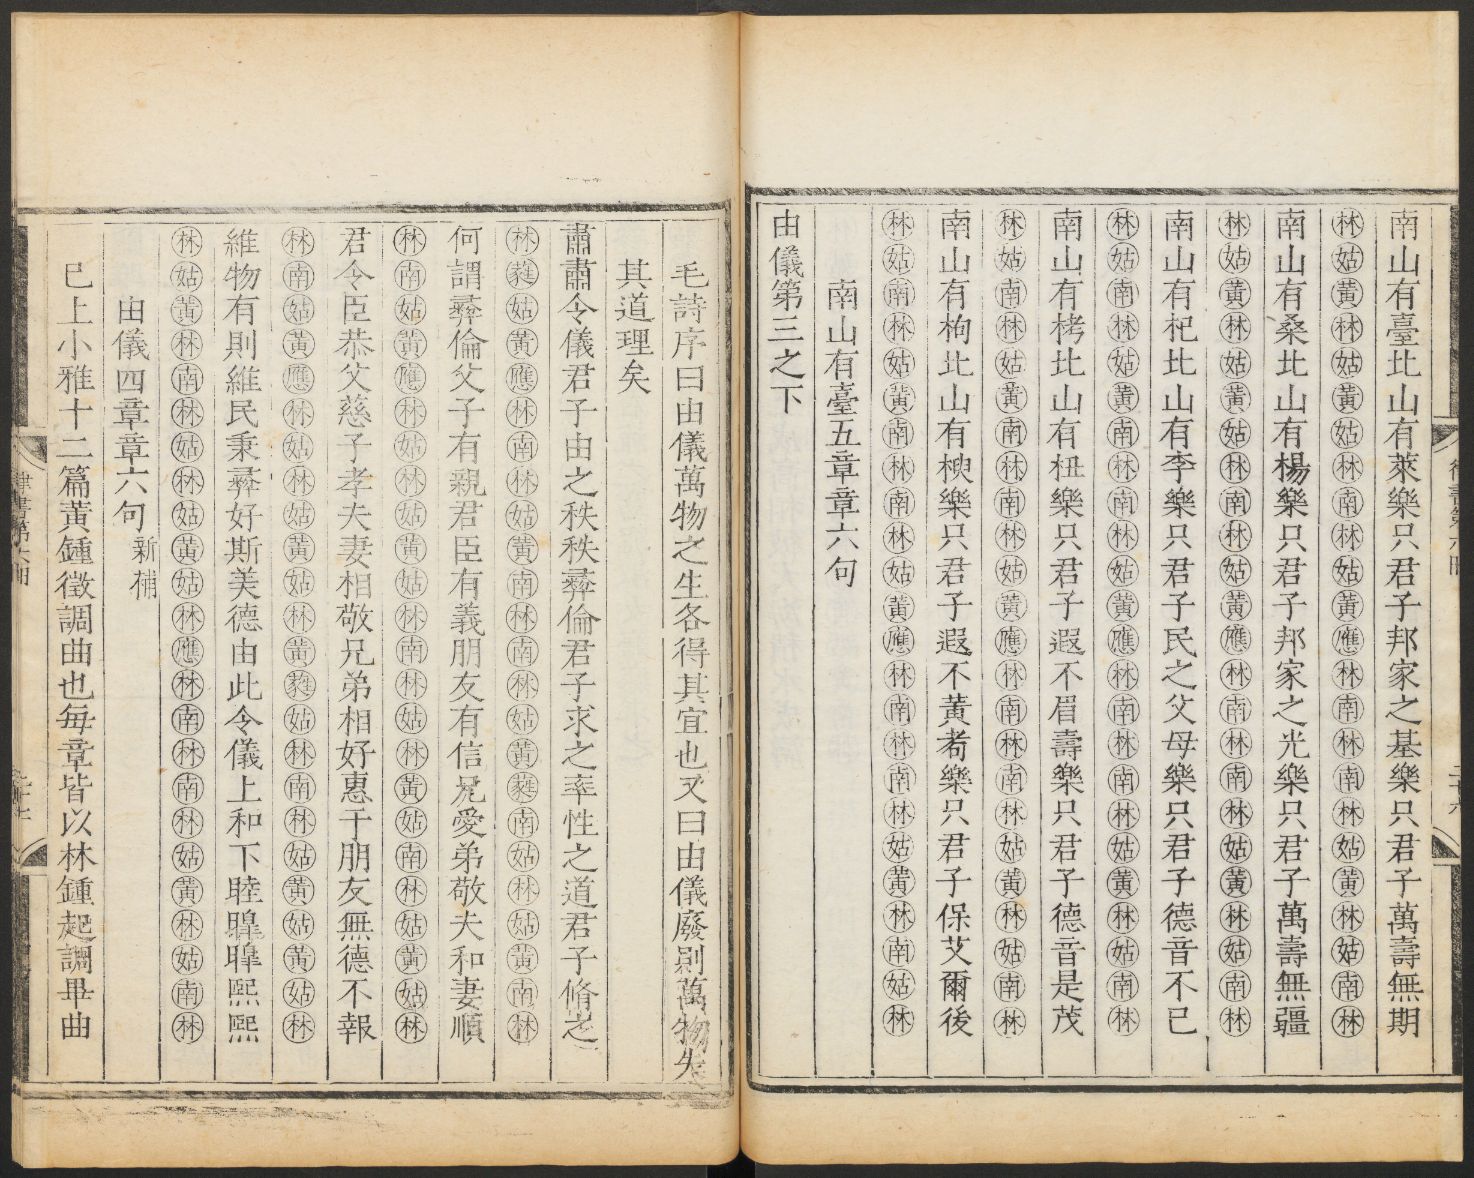 南山有臺北山有萊樂只君子邦家之基樂只君子萬壽無期
林姑黃林姑黃姑林南林姑黃應林南林南林姑黃林姑南林
南山有桑北山有楊樂只君子邦家之光樂只君子萬壽無疆
林姑黃林姑黃姑林南林姑黃應林南林南林姑黃林姑南林
南山有杞北山有李樂只君子民之父母樂只君子德音不已
林姑南林姑黃南林南林姑黃應林南林南林姑黃林姑南林
南山有栲北山有杻樂只君子遐不眉壽樂只君子德音是茂
林姑南林姑黃南林南林姑黃應林南林南林姑黃林姑南林
南山有枸北山有楰樂只君子遐不黃耇樂只君子保艾爾後
林姑南林姑黃南林南林姑黃應林南林南林姑黃林南姑林
南山有臺五章章六句
由儀第三之下
毛詩序曰由儀萬物之生各得其宜也又曰由儀廢則萬物失
其道理矣
肅肅令儀君子由之秩秩彞倫君子求之率性之道君子脩之
林蕤姑黃應林南林姑黃南林南林姑黃蕤南姑林姑黃南林
何謂彞倫父子有親君臣有義朋友有信兄愛弟敬夫和妻順
林南姑黃應林姑林姑黃姑林南林姑林黃姑南林姑黃姑林
君令臣恭父慈子孝夫妻相敬兄弟相好惠于朋友無德不報
林南姑黃應林姑林姑黃姑林黃蕤姑林南林姑黃姑黃姑林
維物有則維民秉彞好斯美德由此令儀上和下睦皥皥熙熙
林姑黃林南林姑林姑黃姑林應林南林南林姑黃林姑南林
由儀四章章六句新補
已上小雅十二篇黃鍾徵調曲也每章皆以林鍾起調畢曲